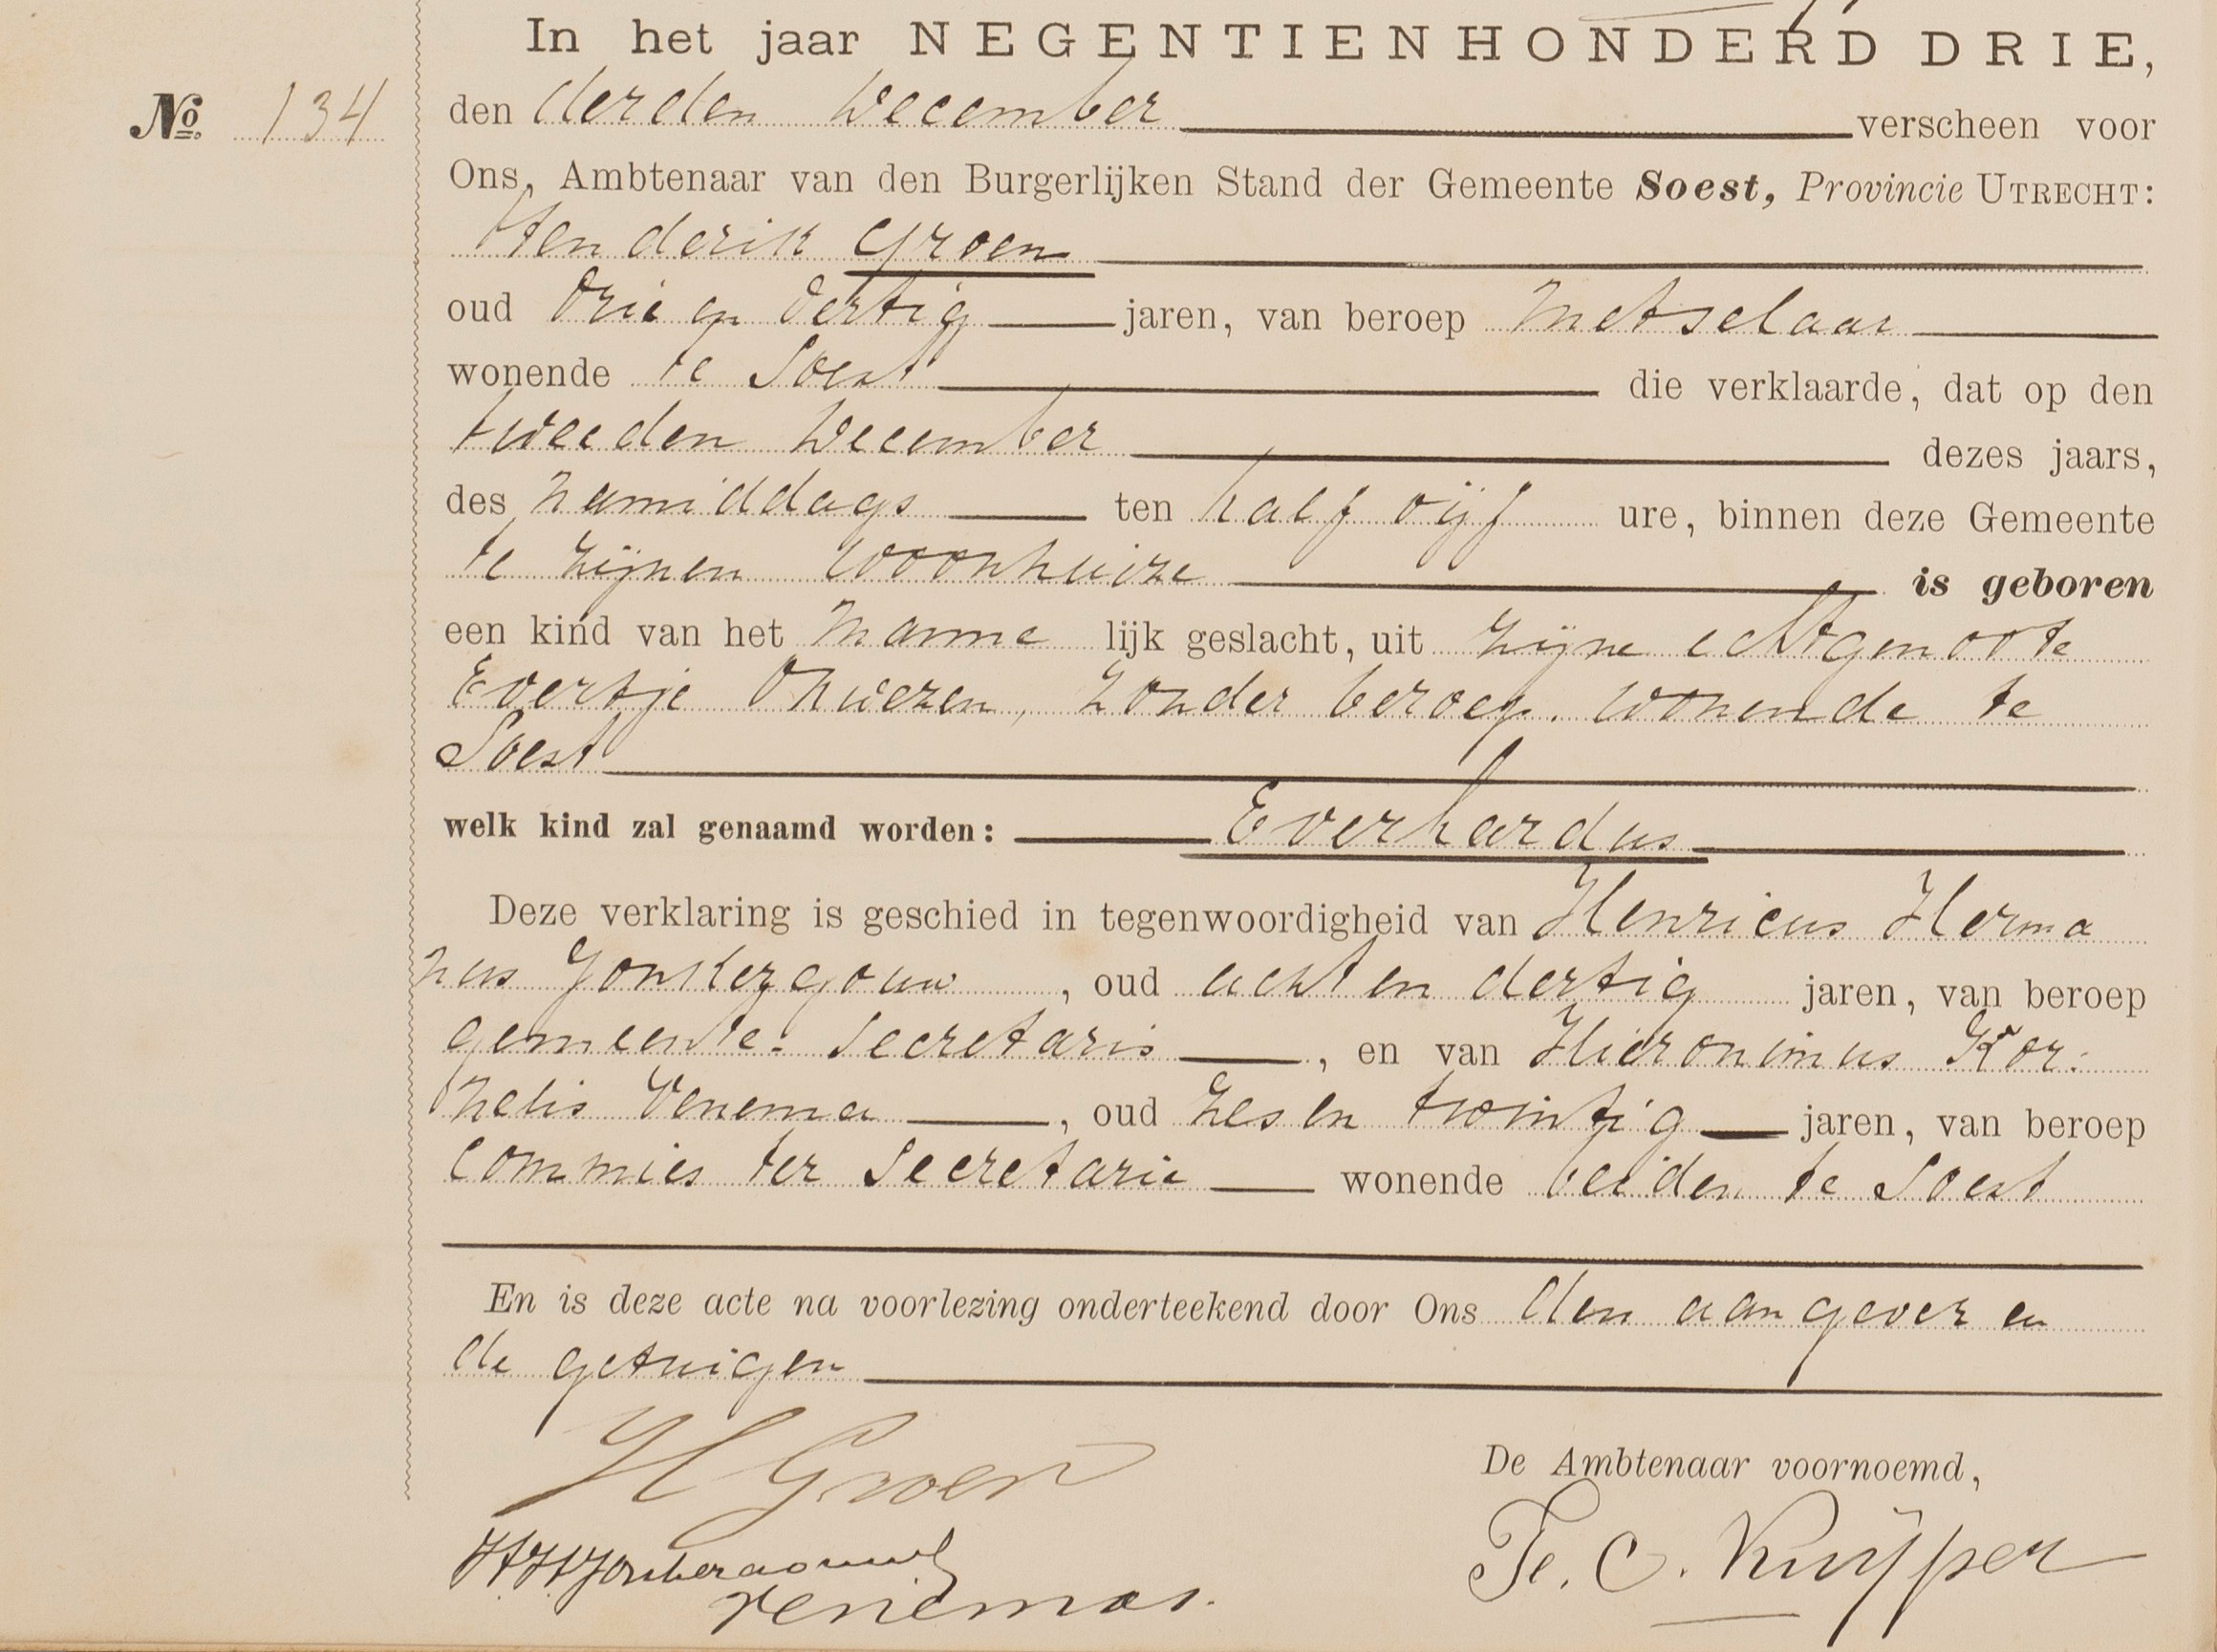 In het jaar NEGENTIENHONDERD DRIE,
No. 134 den derden December verscheen voor
Ons, Ambtenaar van den Burgerlijken Stand der Gemeente Soest, Provincie UTRECHT:
Henderik Groen
oud drie en dertig jaren, van beroep metselaar
wonende te Soest die verklaarde, dat op den
tweeden December dezes jaars,
des namiddags ten half vijf ure, binnen deze Gemeente
te zijnen woonhuize is geboren
een kind van het manne lijk geslacht, uit zijne echtgenoote
Evertje zonder beroep, wonende te
Soest
welk kind zal genaamd worden: Everhardus
Deze verklaring is geschied in tegenwoordigheid van Henricus Herma
nus Jonkergouw, oud acht en dertig jaren, van beroep
gemeente-secretaris, en van Hieronimus Kor:
nelis Venema, oud zes en twintig jaren, van beroep
commies ter secretarie wonende beiden te Soest
En is deze acte na voorlezing onderteekend door Ons den aangever en
de getuigen
H Groen
De Ambtenaar voornoemd,
HHJonkergouw
C. Kuijper
Venema